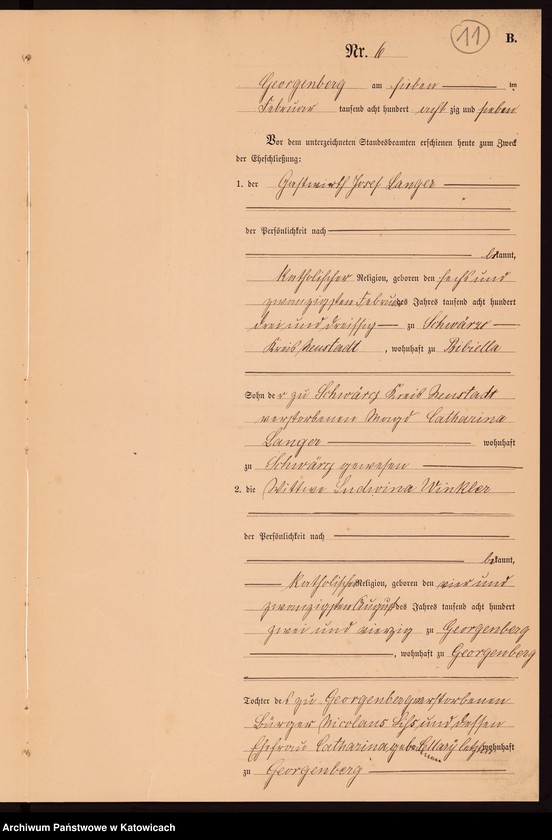 11
B.
Nr. 6
Georgenberg am sieben ten
Februar tausend acht hundert acht zig und sieben
Vor dem unterzeichneten Standesbeamten erschienen heute zum Zweck
der Eheschließung:
1. der Gastwirth Josef Langer
der Persönlichkeit nach
bekannt,
katholischer Religion, geboren den sechs und
zwanzigsten Februar des Jahres tausend acht hundert
drei und dreissig zu Schwärze
Kreis Neustadt, wohnhaft zu Bibiella
Sohn der zu Schwärz Kreis Neustadt
verstorbenen Magd Catharina
Langer wohnhaft
zu Schwärz gewesen
2. die Wittwe Ludwina Winkler
der Persönlichkeit nach
bekannt,
katholischer Religion, geboren den vier und
zwanzigsten August des Jahres tausend acht hundert
zwei und vierzig zu Georgenberg
, wohnhaft zu Georgenberg
Tochter des zu Georgenberg verstorbenen
Bürger Nicolaus und dessen
Ehefrau Catharina wohnhaft
zu Georgenberg
Archiwum Państwowe w Katowicach